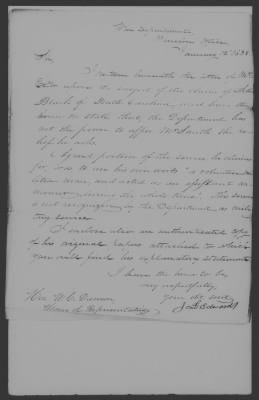 War Department
Pension Office
January 12th 1838.
Sir,
I return herewith the letter of Mr
upon the subject of the claim of John
Black of South Carolina, and have the
honor to state that, the Department has
not the power to offer Mr Smith the re-
lief he asks.
A great portion of the service he claims
for, was to use his own words "a volunteer
man, and acted as an assistant
during the whole time". This service
is not recognized in the Department as mili-
tary service.
I enclose also an authenticated copy
of his original papers attached to which
you will find his explanatory statement
I have the honor to be
very respectfully
your obt servt
J. L. Edwards
Hon. W. C. Dawson
House of Representatives